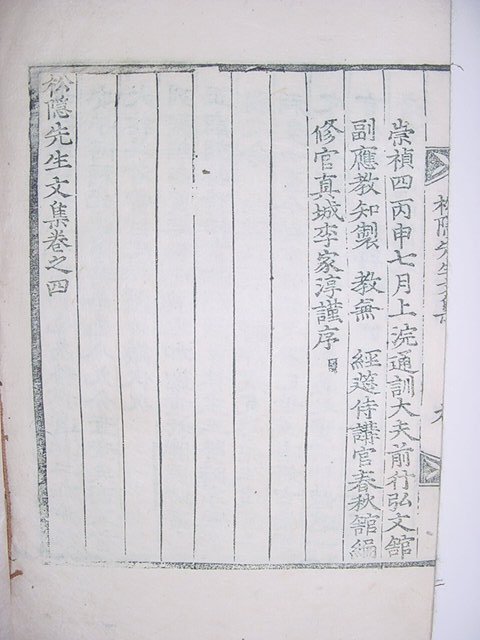 松隱先生文集
崇禎四丙申七月上浣通訓大夫前行弘文館
副應敎知製 敎兼 經筵侍講官春秋館編
修官真城李家淳謹序
松隱先生文集卷之四